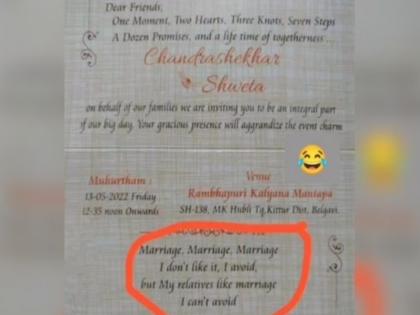 Dear Friends,
One Moment, Two Hearts, Three Knots, Seven Steps
A Dozen Promises, and a life time of togetherness ...
Chandrashekhar
Shweta
on behalf of our families we are inviting you to be an integral part
of our big day. Your gracious presence will aggrandize the event charm
Muhurtham :
13-05-2022 Friday
12-35 noon Onwards
Venue
Rambhapuri Kalyana Mantapa
SH-138, MK Hubli Tq.Kittur Dist, Belgavi.
Marriage, Marriage, Marriage
I don't like it, I avoid,
but My relatives like marriage
I can't avoid